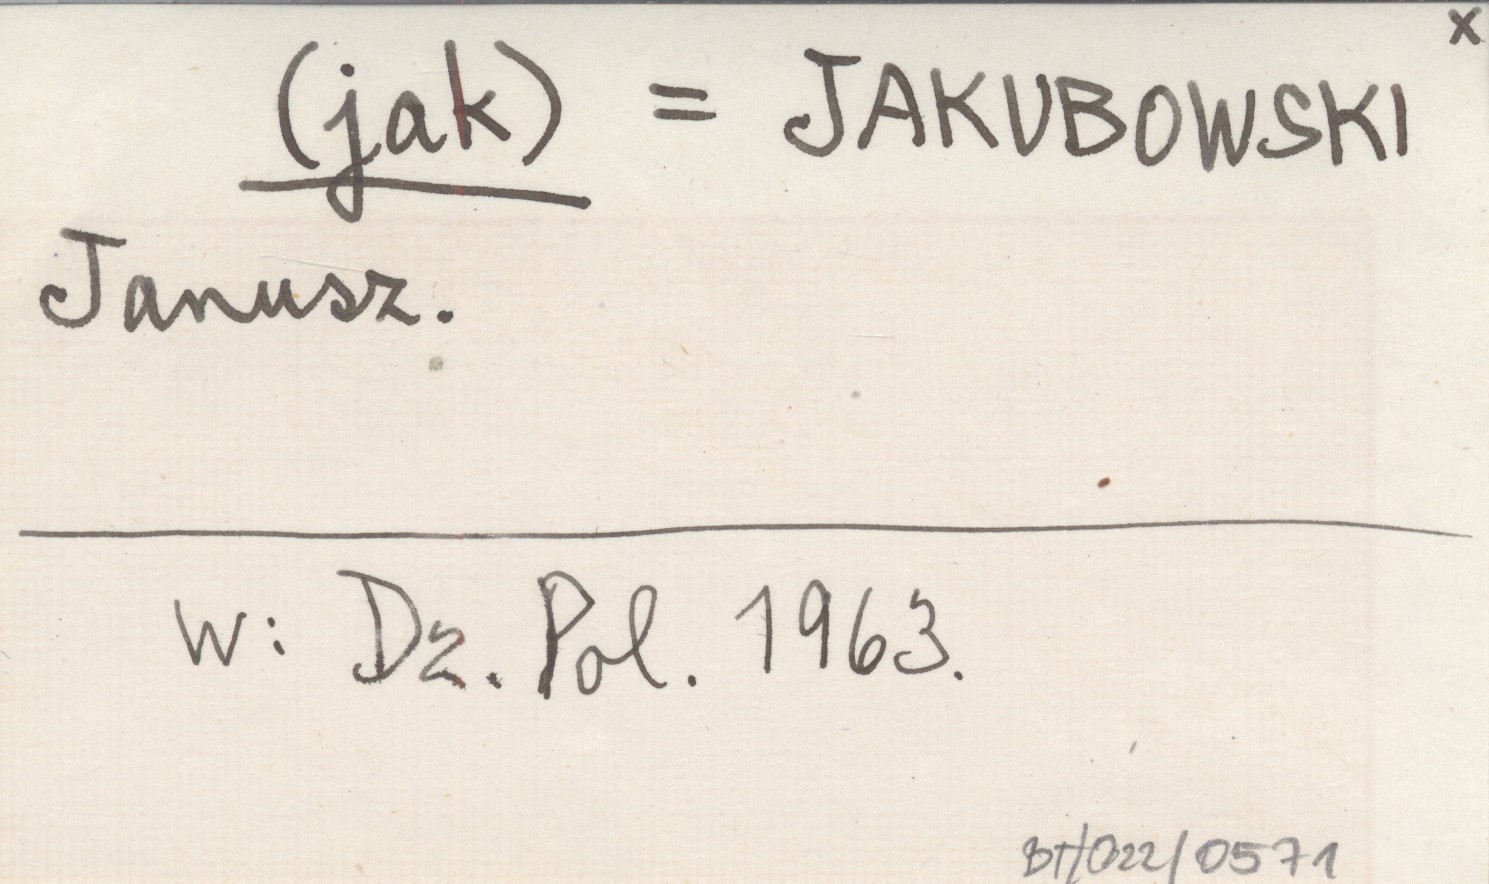 x
(jak) = JAKUBOWSKI
Janusz.
w: Dz. Pol. 1963.
BT/022/0571